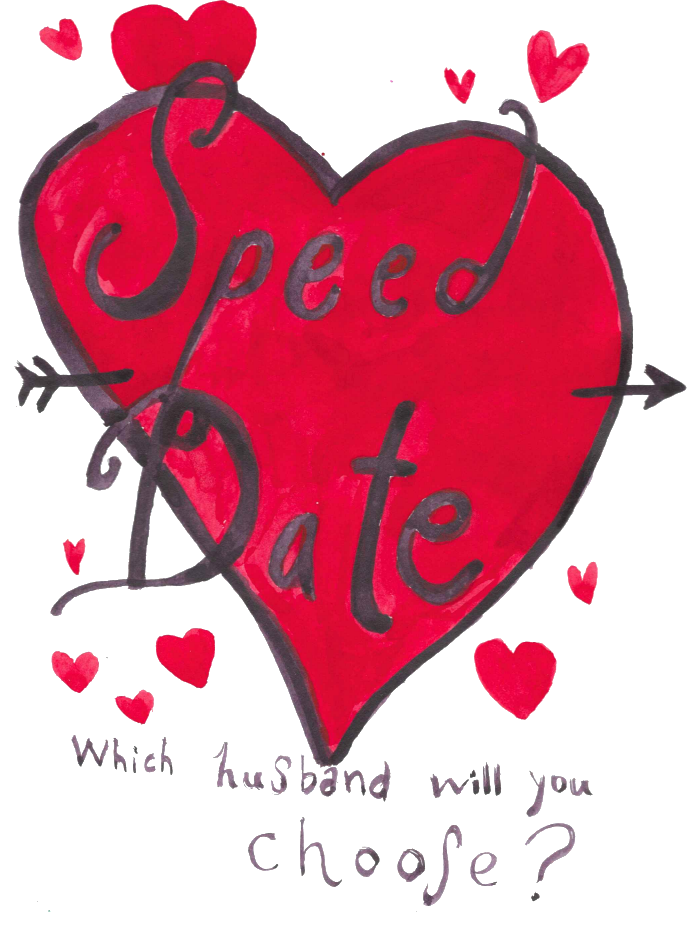 Speed
Date
Which husband will you
choose?